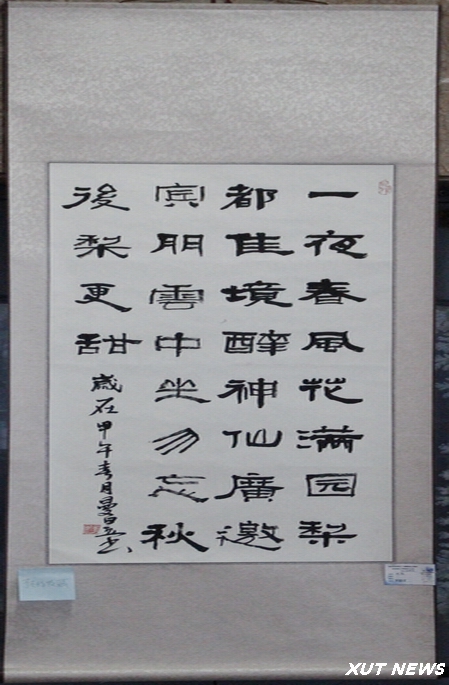 一夜春風花满园梨
都佳境醉神仙廣邀
宾朋雲中坐勿忘秋
後梨更甜
歲在甲午春月
XUT NEWS